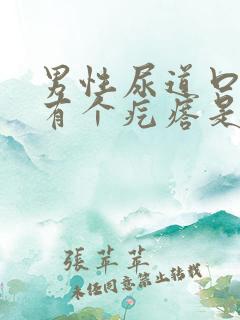 男性尿道口
有个疙瘩是
張苹苹
未经同意禁止转载